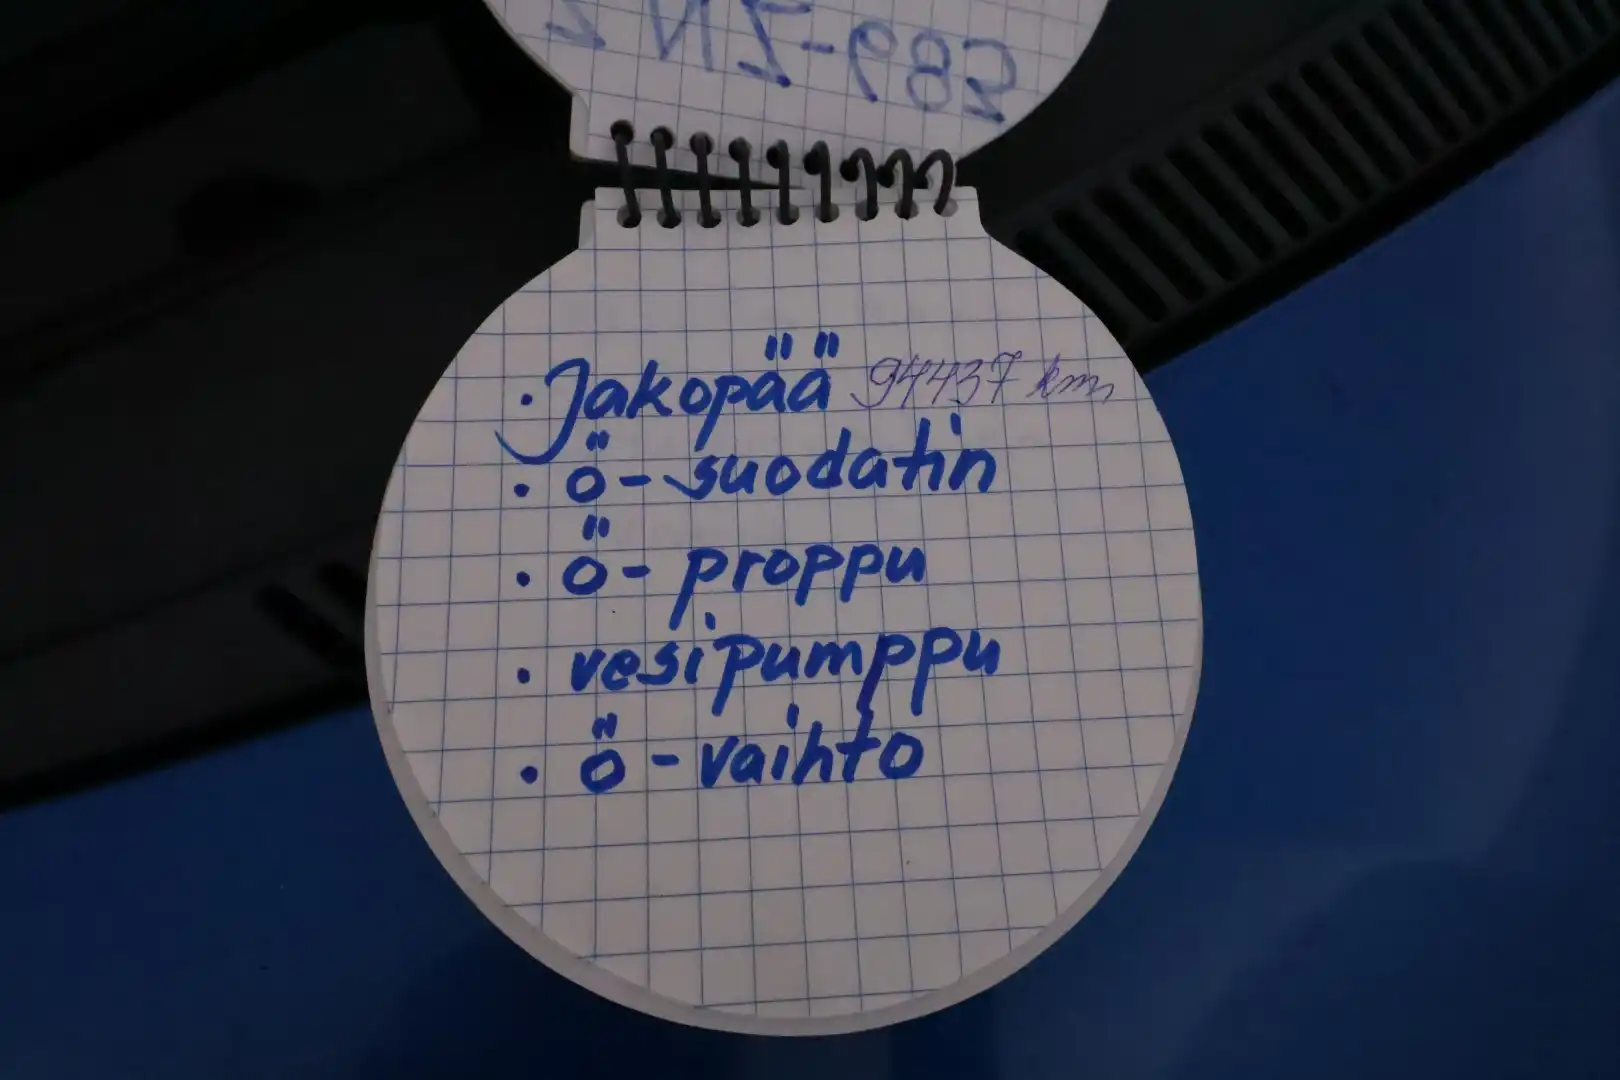 · Jakopää 94437 km
· ö - suodatin
· ö - proppu
· vesipumppu
· ö - vaihto